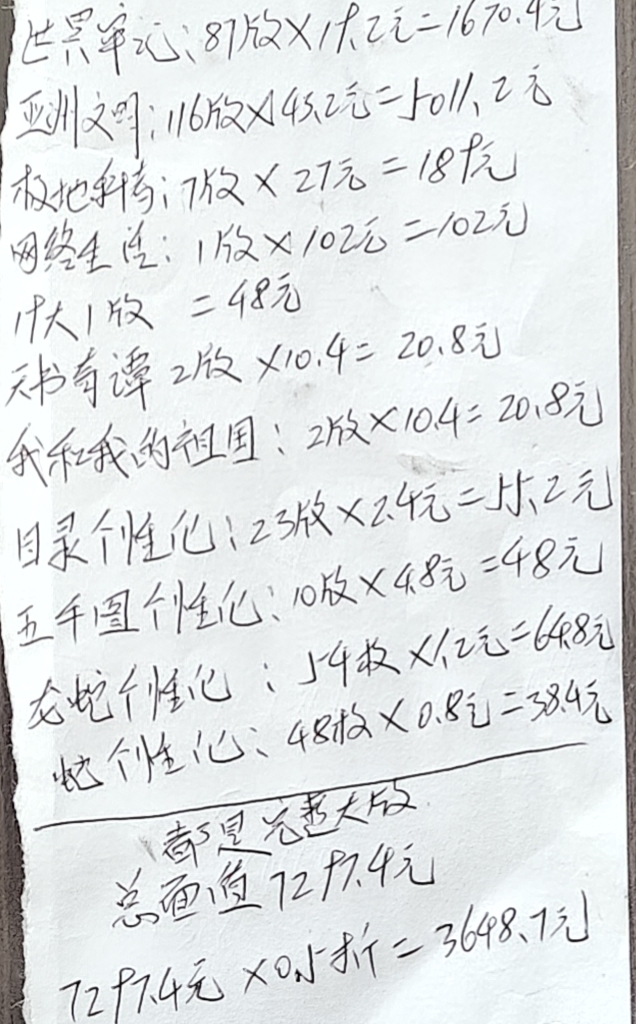 世界军运：87版×19.2元=1670.4元
亚洲文明：116版×43.2元=5011.2元
极地科考：7版×27元=189元
网络生活：1版×102元=102元
19大1版 =48元
天书奇谭2版×10.4=20.8元
我和我的祖国：2版×10.4=20.8元
目录个性化：23版×2.4元=55.2元
五牛图个性化：10版×4.8元=48元
龙蛇个性化：54枚×1.2元=64.8元
蛇个性化：48枚×0.8元=38.4元
都是完整大版
总面值7297.4元
7297.4元×0.5折=3648.7元